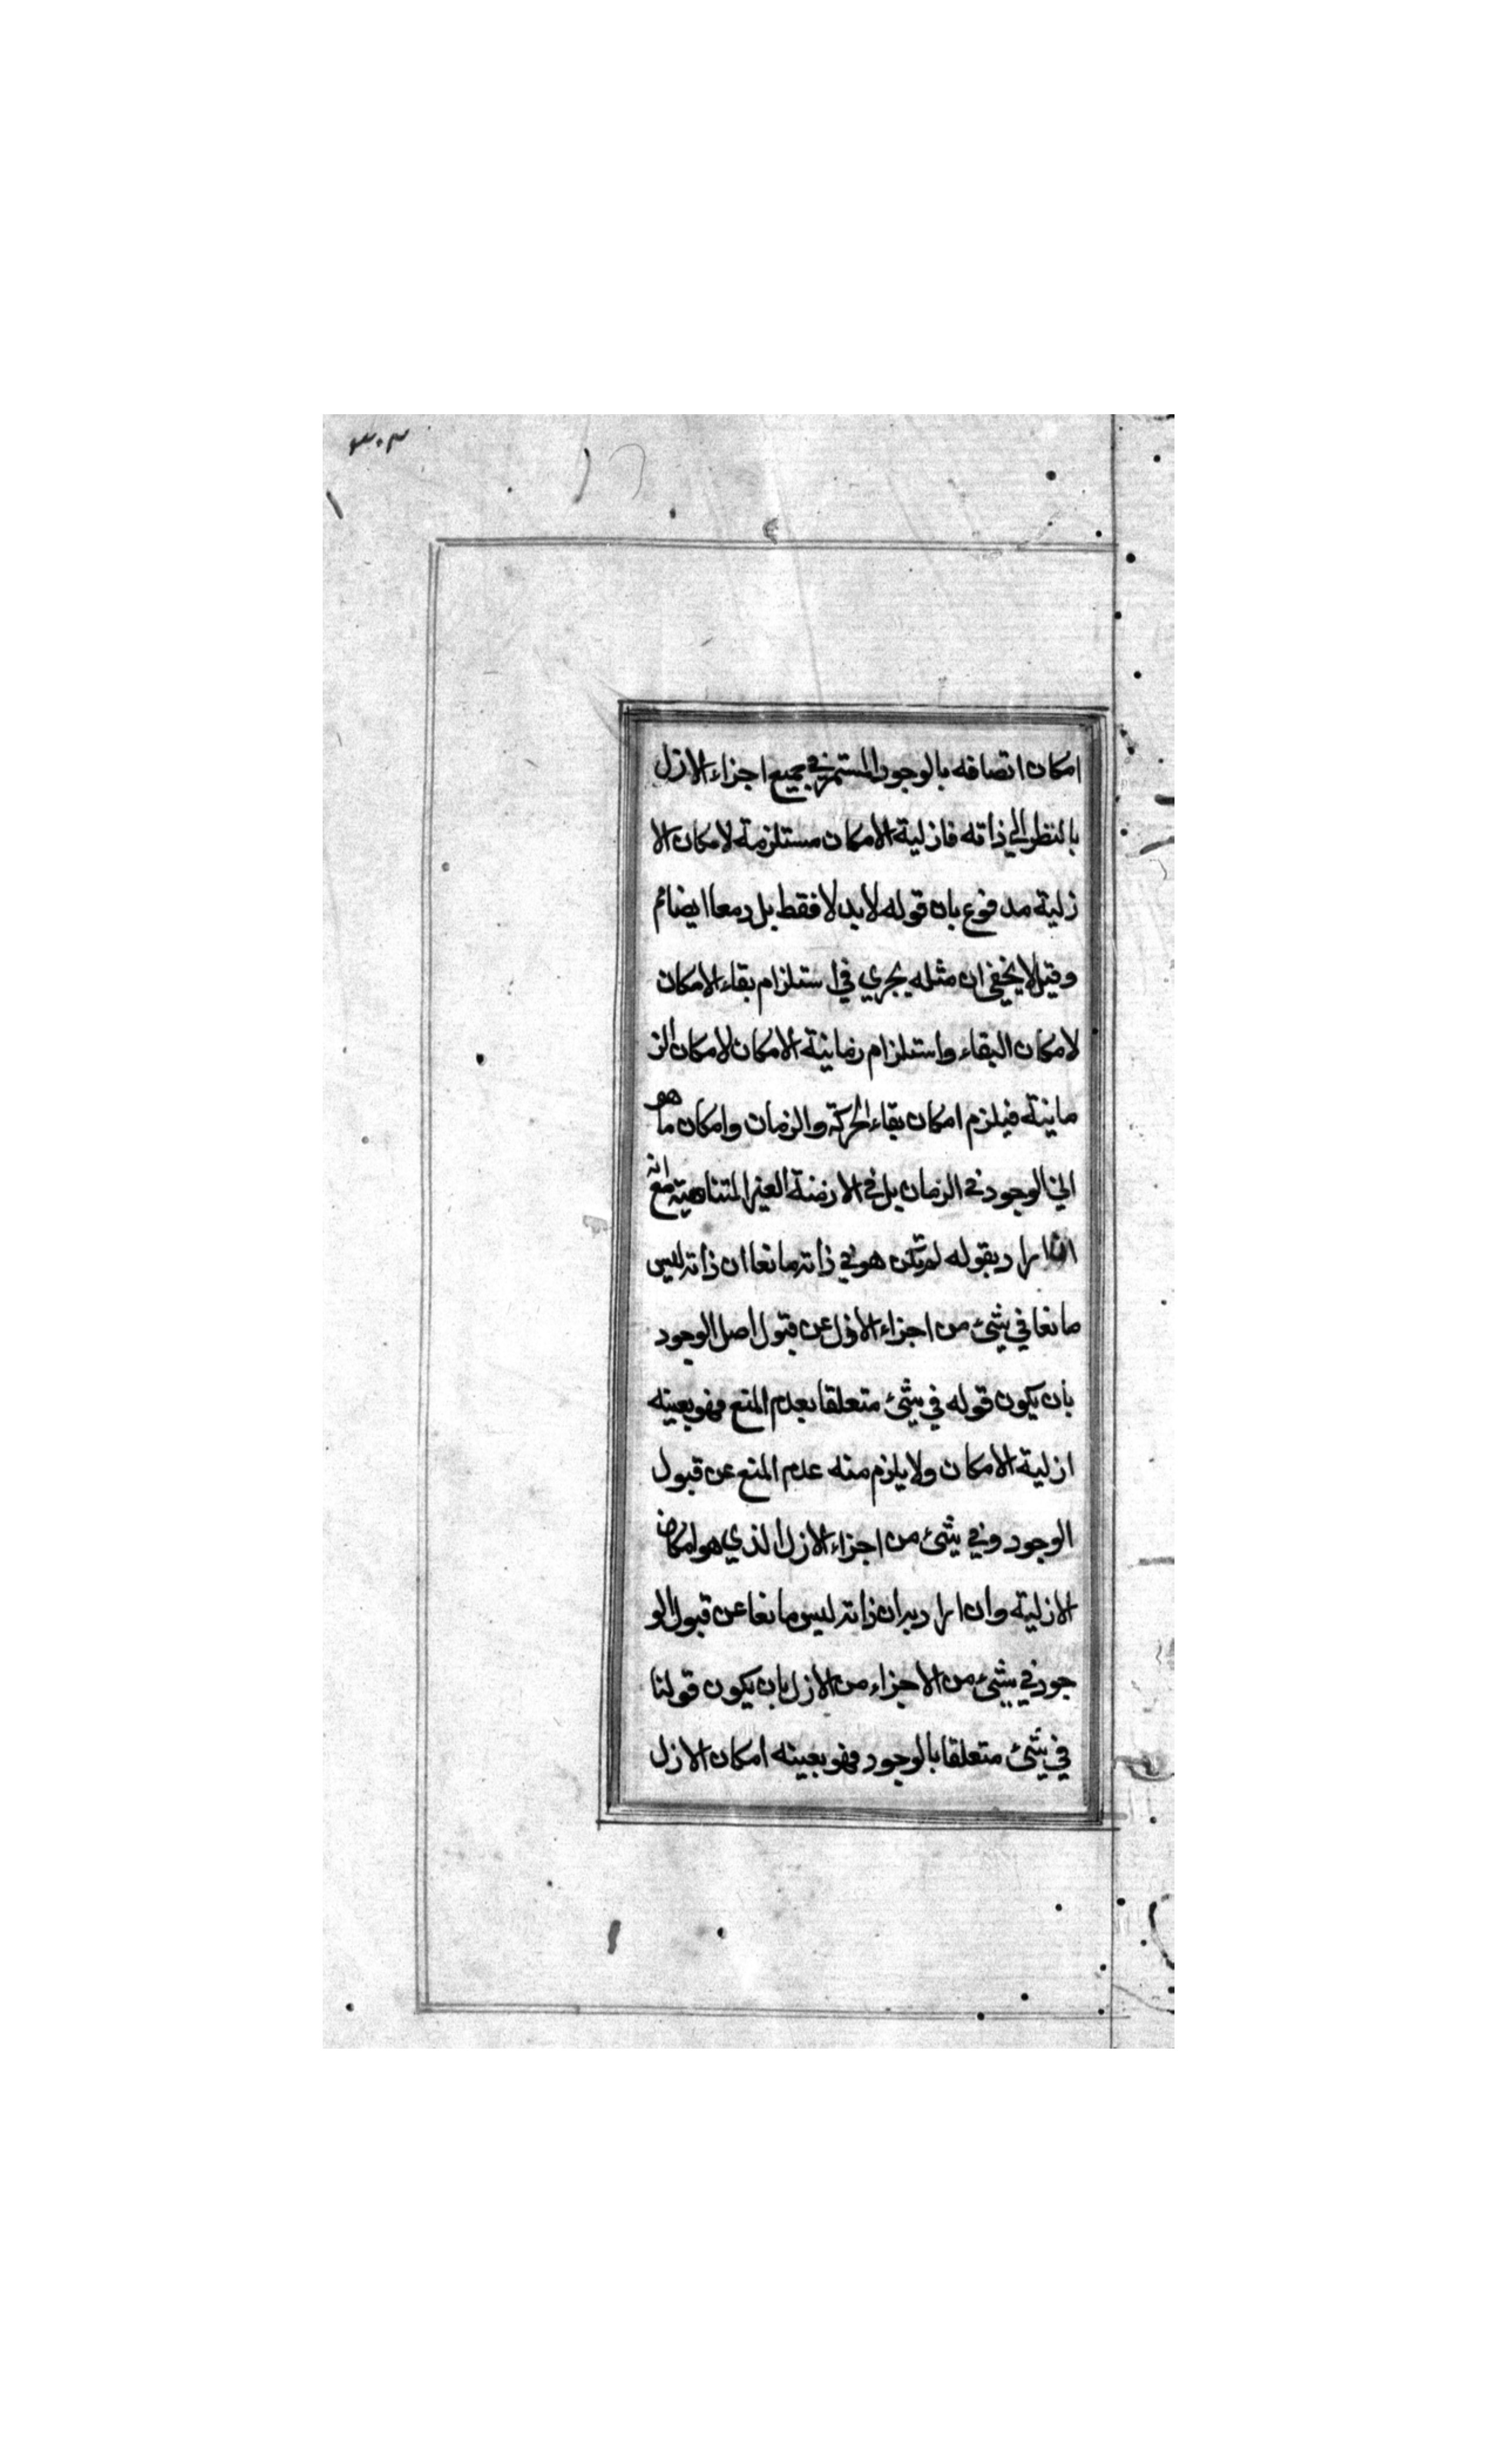 ٣٠٣
امكان اتصافه بالوجود المستمر في جميع اجزاء الازل
بالنظر الي ذاته فازلية الامكان مستلزمة لامكان الا
زلية مدفوع بان قوله لا بدلا فقط بل ومعا ايضا ثم
وقيل لا يخفي ان مثله يجري في استلزام بقاء الامكان
لامكان البقاء واستلزام زمانية الامكان لامكان الز
مانية فيلزم امكان بقاء الحركة والزمان وامكان ما هو
الوجود في الزمان بل في الازمنة الغير المتناهية مع انه
اراد بقوله لم تكن هو في ذاته مانعا ان ذاته ليس
مانعا في شئ من اجزاء الازل عن قبول اصل الوجود
بان يكون قوله في شئ متعلقا بعدم المنع فهو بعينه
ازلية الامكان ولا يلزم منه عدم المنع عن قبول
الوجود وفي شئ من اجزاء الازل الذي هو امكان
الازلية وان اراد به ان ذاته ليس مانعا عن قبول الو
جود في شئ من الاجزاء من الازل بان يكون قولنا
في شئ متعلقا بالوجود فهو بعينه امكان الازل